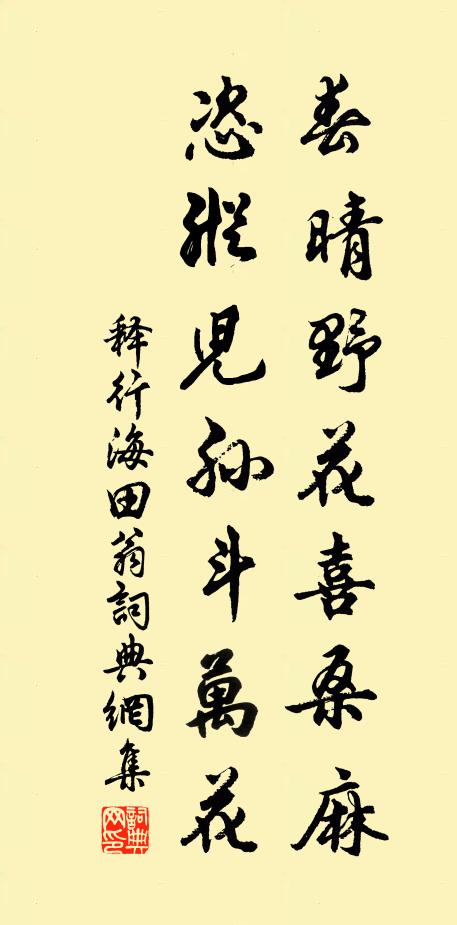 春晴野花喜桑麻
恣縱兒孙斗萬花
释行海田翁詞典網集
詞典网印